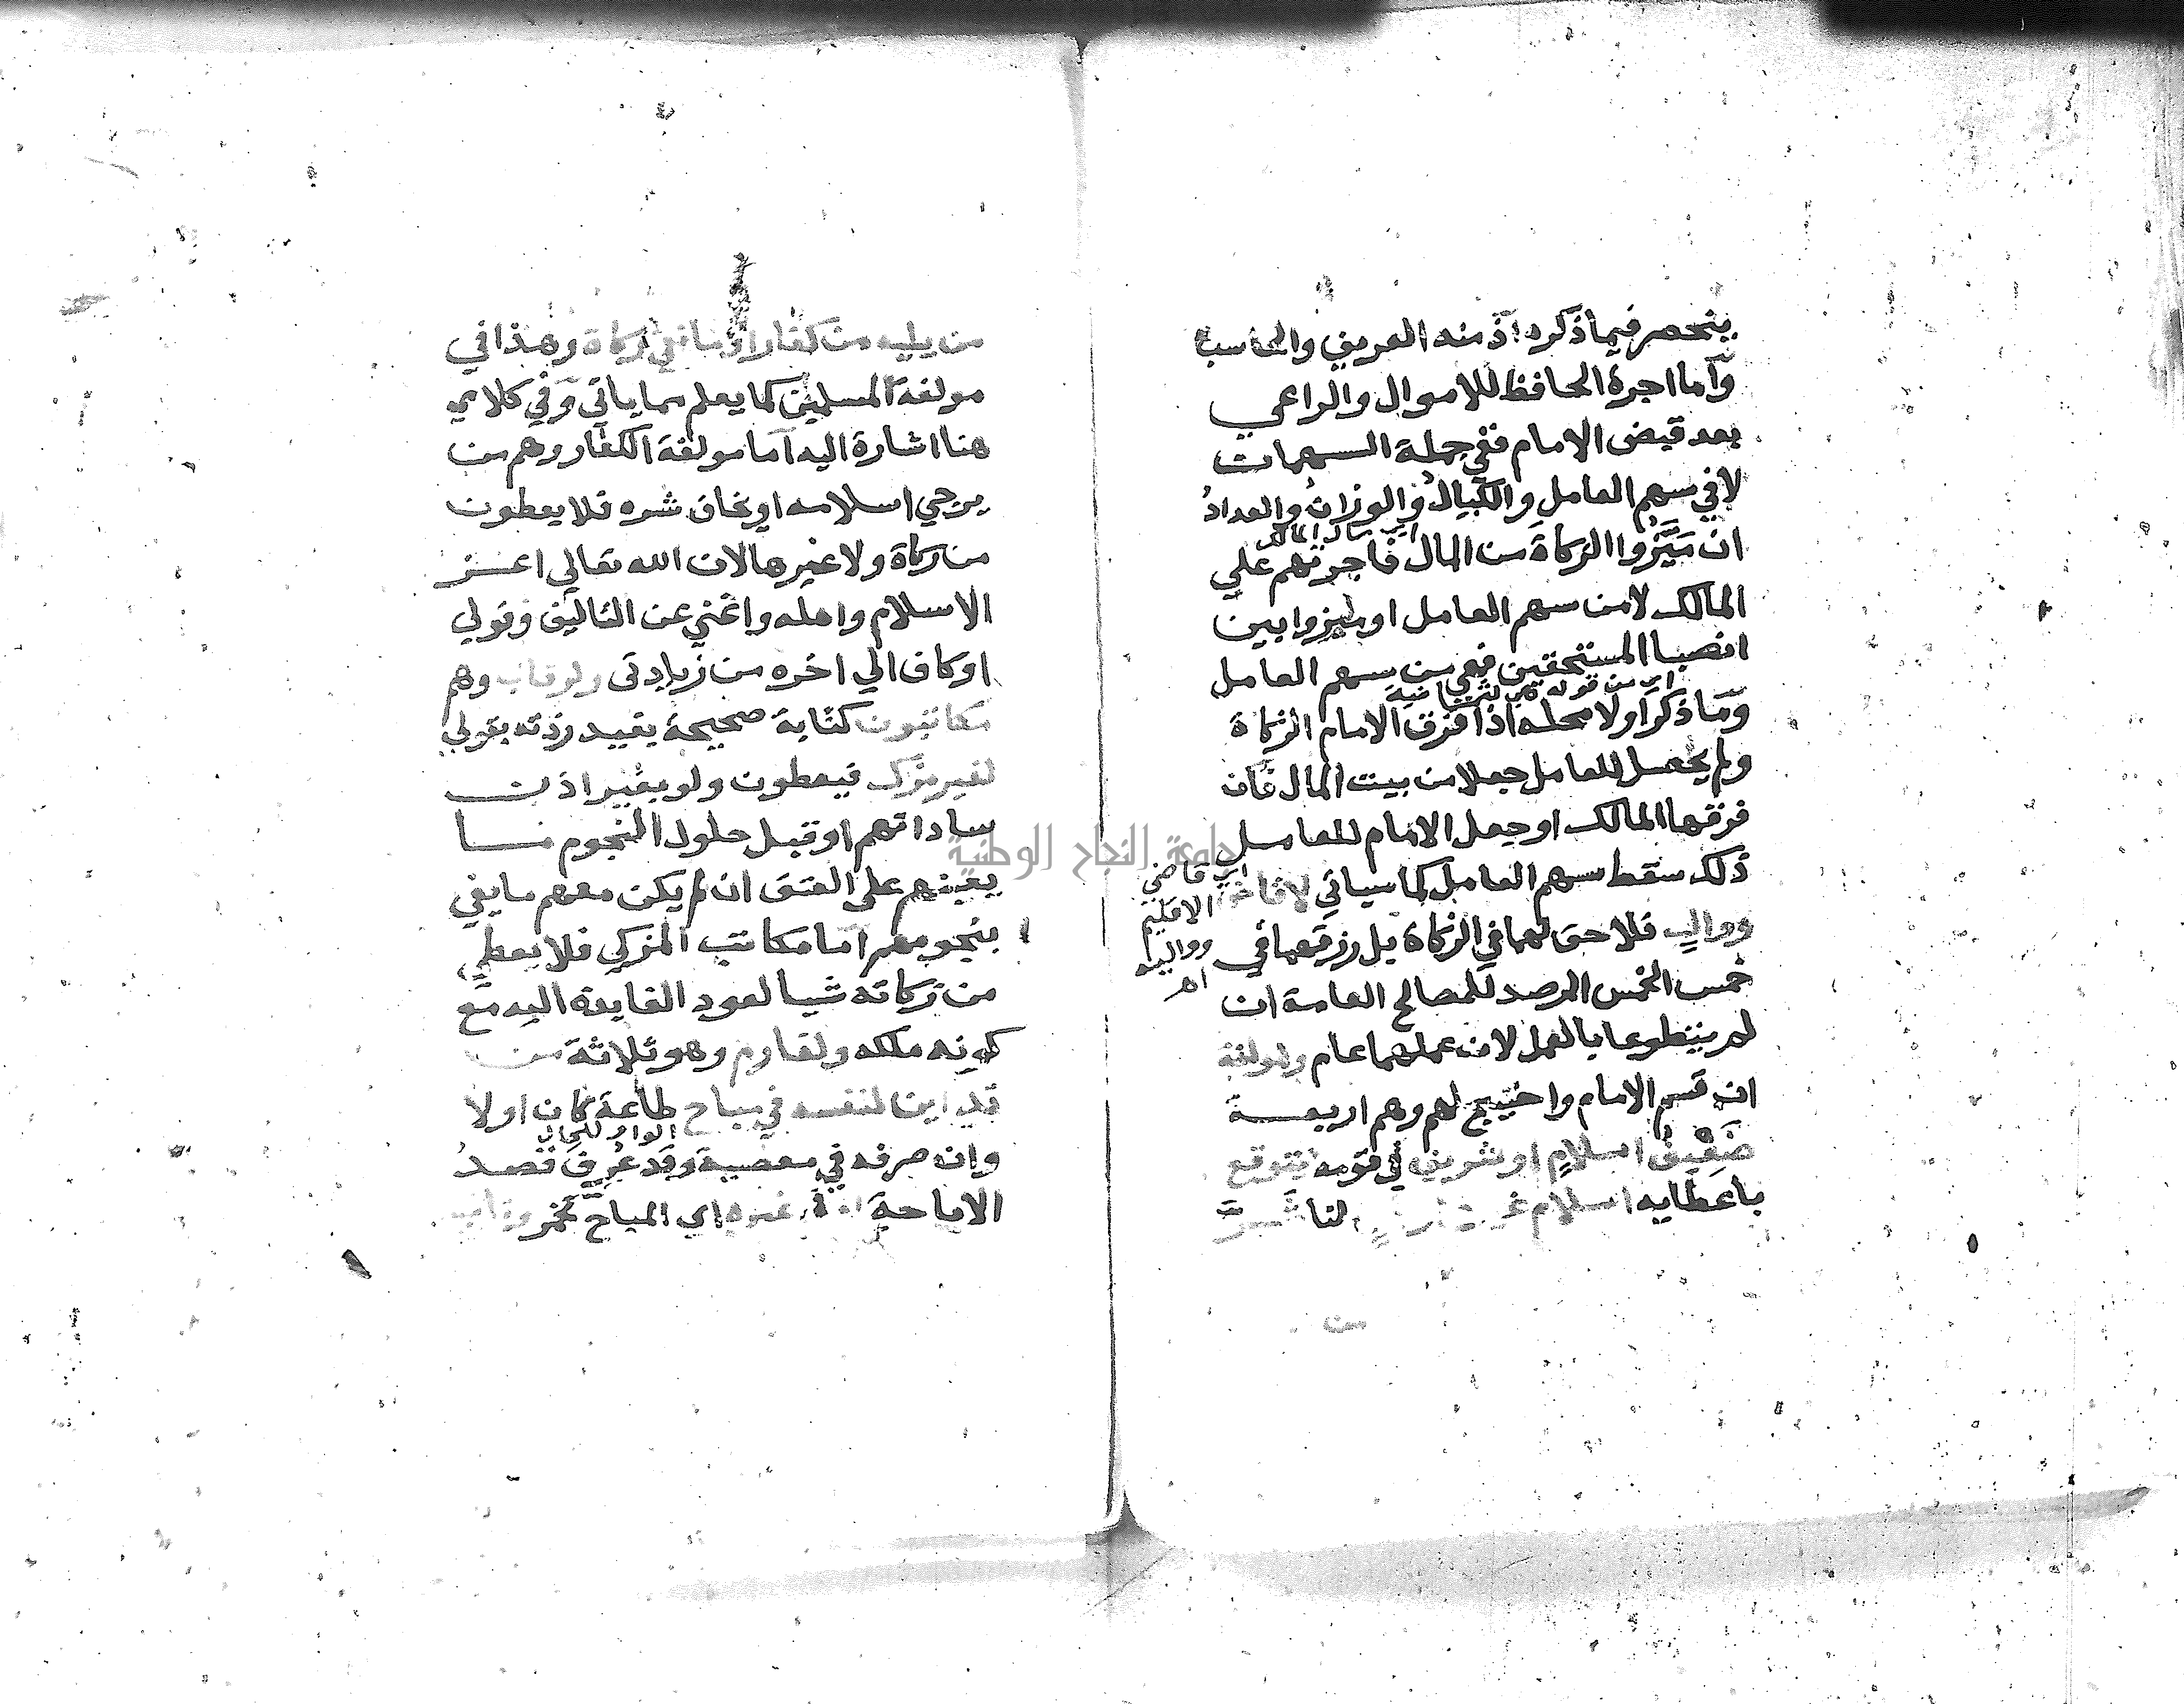 ينحصر فيما ذكره اذ منه العريف والحاسب
وأما اجرة الحافظ للاموال والراعي
بعد قبض الامام ففي جملة السهمان
لا في سهم العامل والكيال والوزان والعداد
اي مال المالك
ان ميزوا الزكاة من المال فاجرتهم علي
المالك لا من سهم العامل او ميزوا بين
انصبا المستحقين فهي من سهم العامل
اي من قوله
وما ذكر اولا محله اذا فرق الامام الزكاة
ولم يجعل للعامل جعلا من بيت المال فان
فرقها المالك او جعل الامام للعامل
ذلك سقط سهم العامل كما سياتي لا قاض
اي قاضي
الاقليم
وواليه
اهـ
ووال فلا حق لهما في الزكاة بل رزقهما في
خمس الخمس المرصد للمصالح العامة ان
لم يتطوعا بالعمل لان عملهما عام ولمولفة
ان قسم الامام واحتيج لهم وهم اربعة
ضعيف اسلام او شريف في قومه يتوقع
باعطايه اسلام لنا شر
من
من يليه من كفار او مانعي زكاة وهذا في
مولفة المسلمين كما يعلم مما ياتي وفي كلامي
هنا اشارة اليه اما مولفة الكفار وهم من
يرجي اسلامه او يخاف شره فلا يعطون
من زكاة ولا غيرها لان الله تعالي اعز
الاسلام واهله واغني عن التاليف وقولي
او كاف الي اخره من زيادتي ولرقاب وهم
مكاتبون كتابة صحيحة بقيد زدته بقولي
لغير مزك فيعطون ولو بغير اذن
ساداتهم او قبل حلول النجوم ما
يعينهم علي العتق ان لم يكن معهم ما يفي
بنجومهم اما مكاتب المزكي فلا يعطي
من زكاته شيا لعود الفايدة اليه مع
كونه ملكه ولغارم وهو ثلاثة من
تداين لنفسه في مباح طاعة كان او لا
الواو للحال
وان صرفه في معصية وقد عرف قصد
الاباحة او في غيره اي المباح كخمر وتاب
جامعة النجاح الوطنية